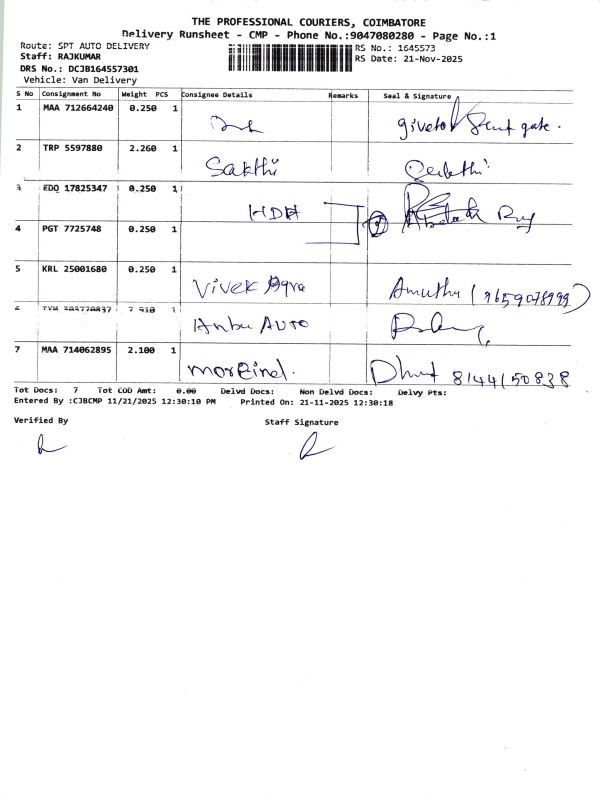 THE PROFESSIONAL COURIERS, COIMBATORE
Delivery Runsheet - CMP - Phone No.:9047080280 - Page No.:1
Route: SPT AUTO DELIVERY RS No.: 1645573
Staff: RAJKUMAR RS Date: 21-Nov-2025
DRS No.: DCJB164557301
Vehicle: Van Delivery
S No Consignment No Weight PCS Consignee Details Remarks Seal & Signature
1 MAA 712664240 0.250 1
gate.
2 TRP 5597880 2.260 1
Sakthi
3 EDQ 17825347 0.250 1
HDH
4 PGT 7725748 0.250 1
5 KRL 25001680 0.250 1
Vivek Agra Amutha (9659078999)
6 7.910 1
Anbu Auto
7 MAA 714062895 2.100 1
8144150838
Tot Docs: 7 Tot COD Amt: 0.00 Delvd Docs: Non Delvd Docs: Delvy Pts:
Entered By :CJBCMP 11/21/2025 12:30:10 PM Printed On: 21-11-2025 12:30:18
Verified By Staff Signature